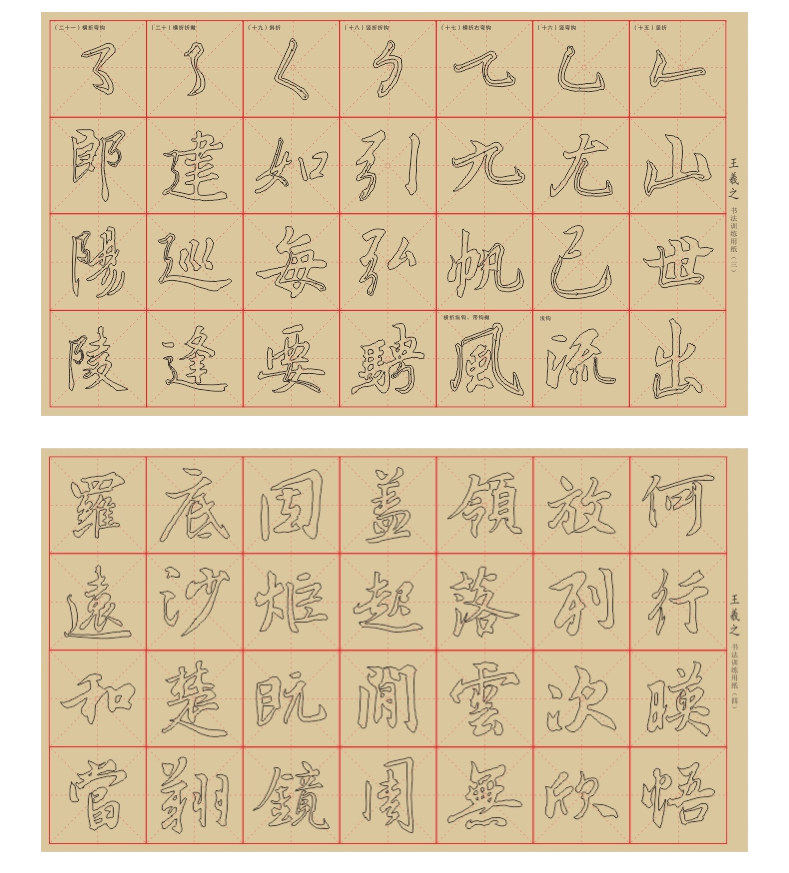 王羲之 书法训练用纸（三）
（十五）竖折
山世出
（十六）竖弯钩
尤己
流
（十七）横折右弯钩
九帆
風
（十八）竖折折钩
引弘騁
（十九）斜折
如每要
（二十）横折折撇
建巡逢
（二十一）横折弯钩
郎陽陵
王羲之 书法训练用纸（四）
何行暎悟
放列次欣
領落雲無
盖起間周
固炬既鏡
底沙楚翔
羅遠和當